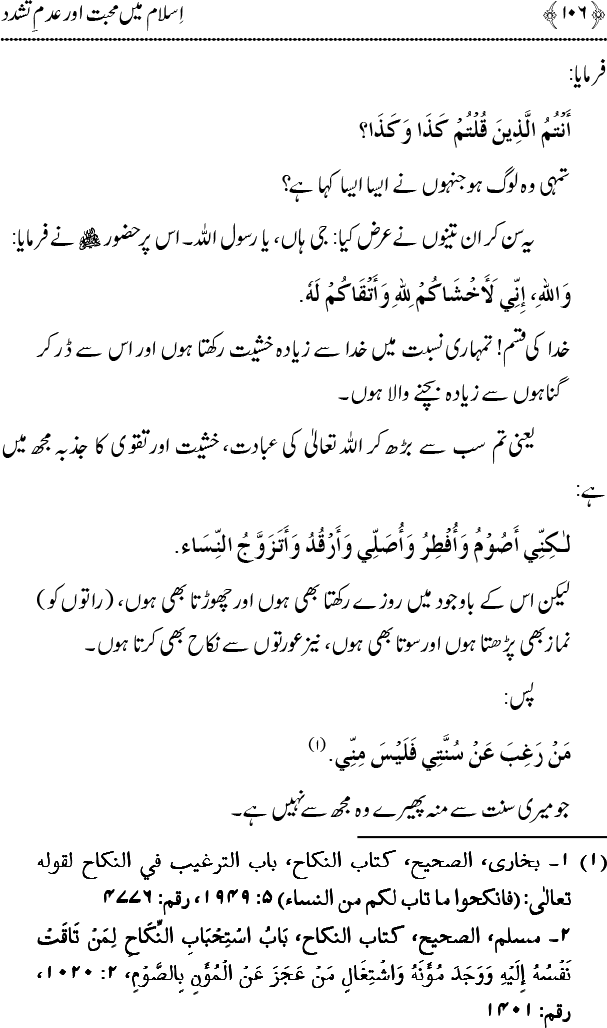 ﴿۱۰۶﴾ اِسلام میں محبت اور عدمِ تشدد
فرمایا:
أَنْتُمُ الَّذِينَ قُلْتُمْ كَذَا وَكَذَا؟
تمہی وہ لوگ ہو جنہوں نے ایسا ایسا کہا ہے؟
یہ سن کر ان تینوں نے عرض کیا: جی ہاں، یا رسول اللہ۔ اس پر حضور ﷺ نے فرمایا:
وَاللهِ، إِنِّي لَأَخْشَاكُمْ لِلّٰهِ وَأَتْقَاكُمْ لَهُ.
خدا کی قسم! تمہاری نسبت میں خدا سے زیادہ خشیت رکھتا ہوں اور اس سے ڈر کر
گناہوں سے زیادہ بچنے والا ہوں۔
یعنی تم سب سے بڑھ کر اللہ تعالیٰ کی عبادت، خشیت اور تقویٰ کا جذبہ مجھ میں
ہے:
لٰكِنِّي أَصُوْمُ وَأُفْطِرُ وَأُصَلِّي وَأَرْقُدُ وَأَتَزَوَّجُ النِّسَاء.
لیکن اس کے باوجود میں روزے رکھتا بھی ہوں اور چھوڑتا بھی ہوں، (راتوں کو)
نماز بھی پڑھتا ہوں اور سوتا بھی ہوں، نیز عورتوں سے نکاح بھی کرتا ہوں۔
پس:
مَنْ رَغِبَ عَنْ سُنَّتِي فَلَيْسَ مِنِّي. (۱)
جو میری سنت سے منہ پھیرے وہ مجھ سے نہیں ہے۔
(۱) ۱۔ بخاری، الصحیح، کتاب النکاح، باب الترغیب في النکاح لقوله
تعالٰی: (فانکحوا ما تاب لکم من النساء) ۵: ۱۹۴۹، رقم: ۴۷۷۶
۲۔ مسلم، الصحیح، کتاب النکاح، بَابُ اسْتِحْبَابِ النِّكَاحِ لِمَنْ تَاقَتْ
نَفْسُهُ إِلَيْهِ وَوَجَدَ مُؤْنَهُ وَاشْتِغَالِ مَنْ عَجَزَ عَنْ الْمُؤَنِ بِالصَّوْمِ، ۲: ۱۰۲۰،
رقم: ۱۴۰۱